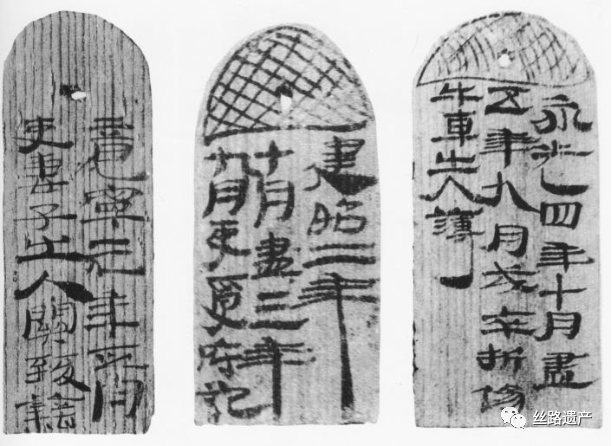 永光四年十月盡
五年九月戍卒折傷
牛車出入簿
建昭二年
十月盡三年
九月吏受府記
竟寧元年正月
吏妻子出入關致籍
丝路遗产